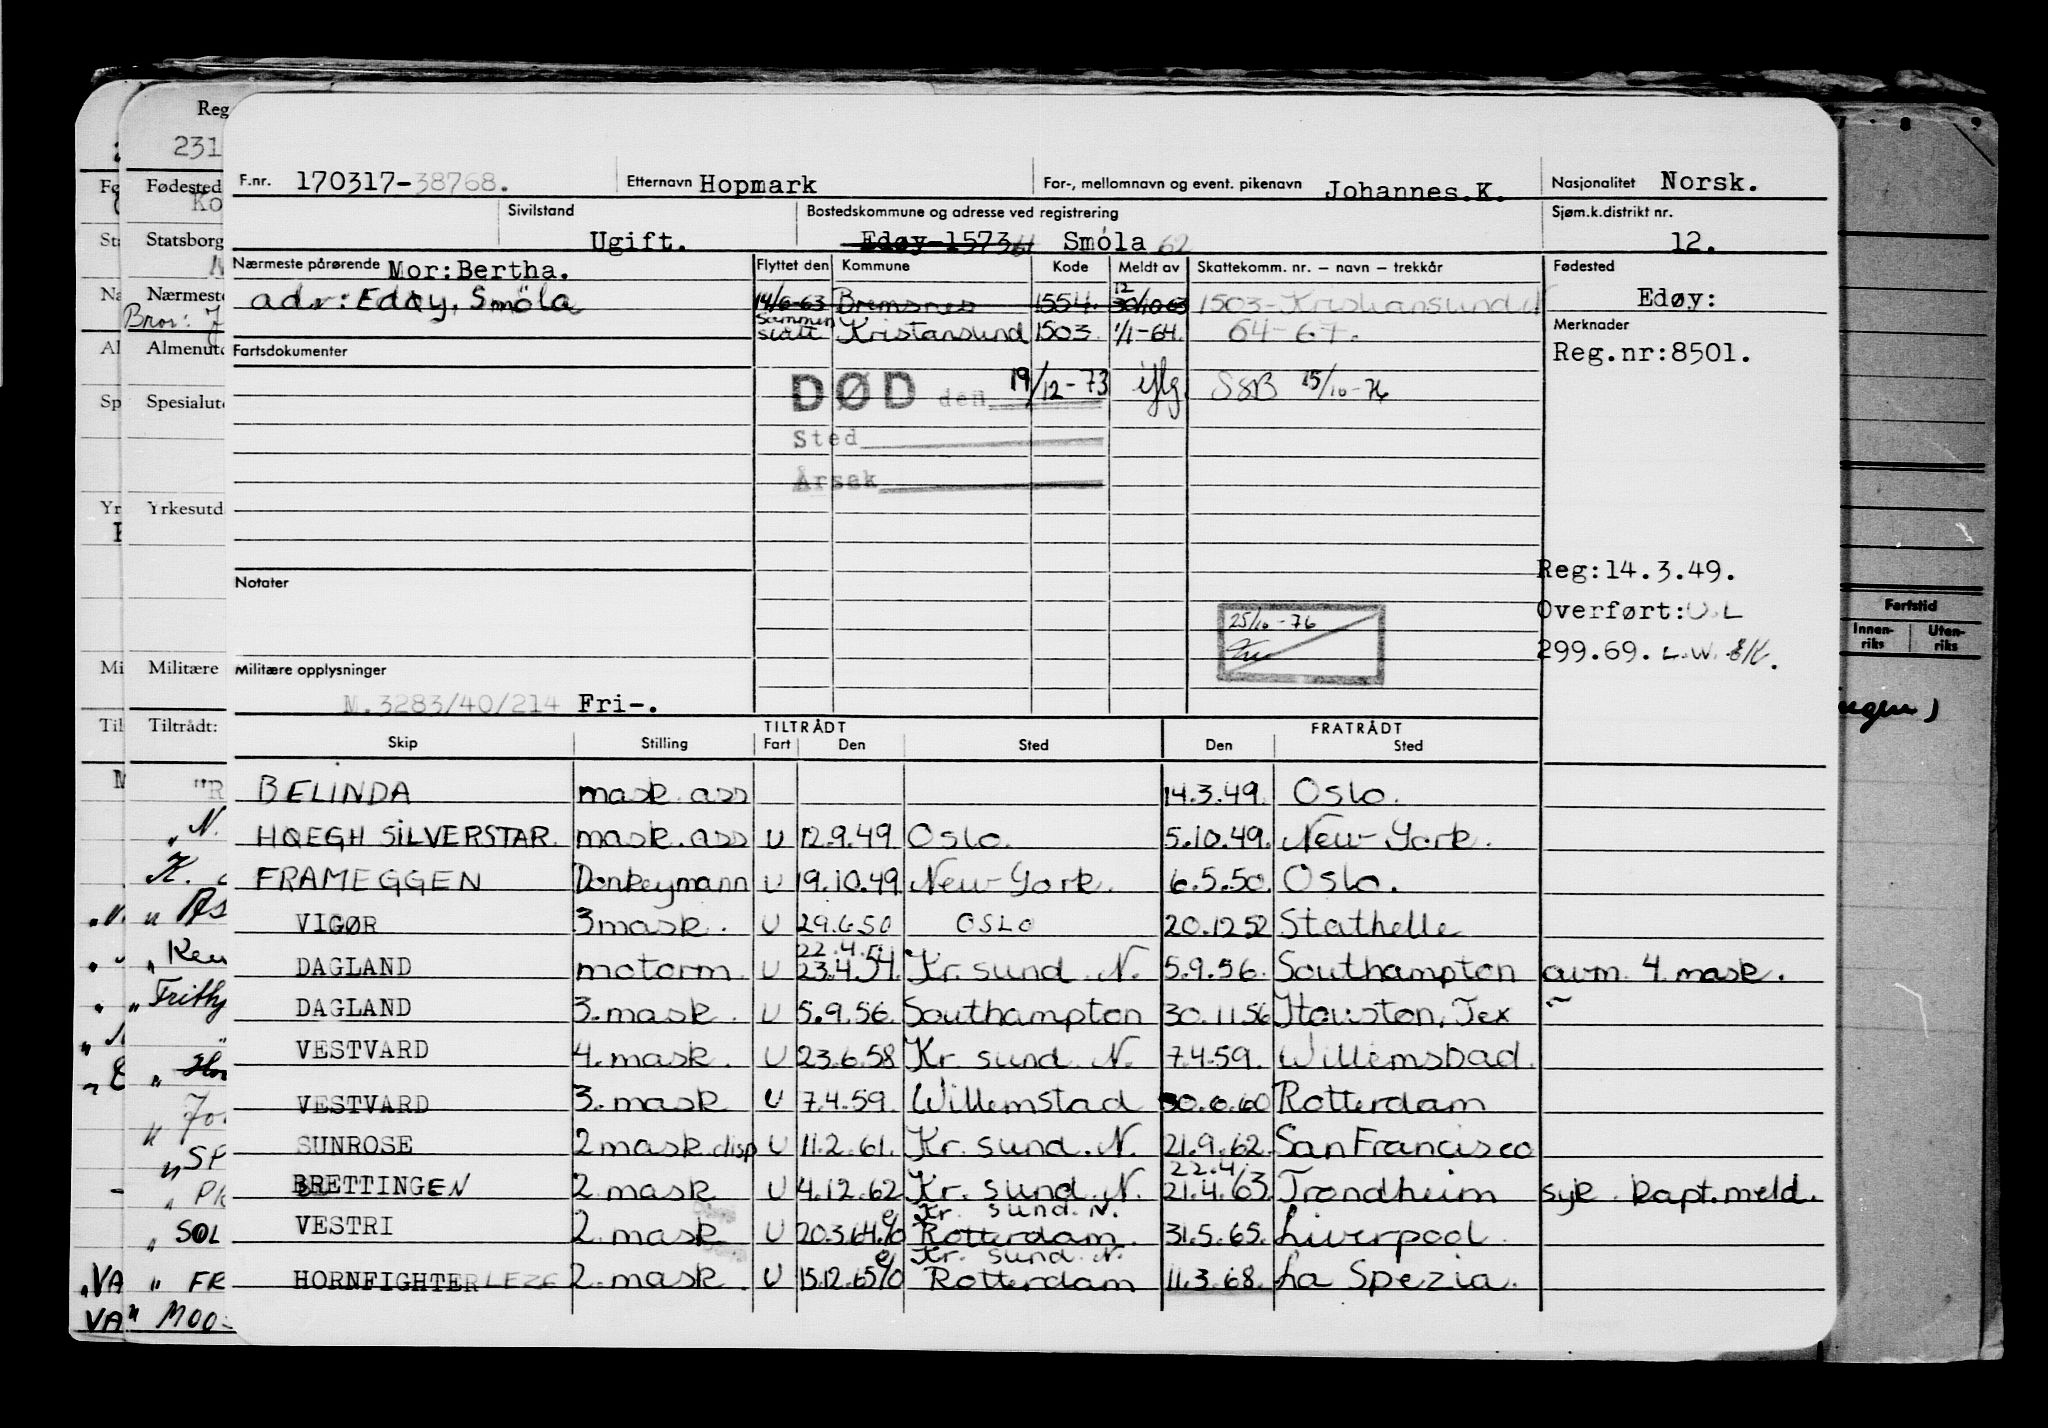 Reg
231
Fødested
Ko
Statsborg
Nærmeste
Bror: J
Almenutd
Spesialutd
Yrkesutd
Militære
Tiltrådt:
F.nr. 170317-38768. Etternavn Hopmark For-, mellomnavn og event. pikenavn Johannes.K. Nasjonalitet Norsk.
Sivilstand Ugift. Bostedskommune og adresse ved registrering Edøy-1573 61 Smöla 62 Sjøm.k.distrikt nr. 12.
Nærmeste pårørende Mor:Bertha. Flyttet den Kommune Kode Meldt av Skattekomm. nr. – navn – trekkår Fødested
adr: Edøy, Smöla 14/6-63 Bremsnes 1554. 12 30/10-63 1503-Kristiansund N Edøy:
Sammen slått Kristansund 1503 1/1-64. 64-67. Merknader
Fartsdokumenter Reg.nr:8501.
DØD den 19/12-73 iflg. SSB 15/10-76
Sted
Årsak
Notater Reg:14.3.49.
25/10-76 Overført:U.L
299.69. L.W. EK.
Militære opplysninger
M.3283/40/214 Fri-.
TILTRÅDT FRATRÅDT
Skip Stilling Fart Den Sted Den Sted
BELINDA mask. ass 14.3.49. Oslo.
HØEGH SILVERSTAR mask. ass U 12.9.49 Oslo. 5.10.49. New-York.
FRAMEGGEN Donkeymann U 19.10.49 New-York. 6.5.50. Oslo.
VIGØR 3mask. U 29.6.50 OSLO 20.12 52 Stathelle
DAGLAND motorm. U 22.4.54. 23.4.54. Kr. sund. N. 5.9.56. Southampton avm. 4. mask.
DAGLAND 3. mask. U 5.9.56. Southampton 30.11 56 Houston, Tex
VESTVARD 4. mask. U 23.6.58 Kr. sund N. 7.4.59. Willemsbad.
VESTVARD 3. mask U 7.4.59. Willemstad 30.6.60 Rotterdam
SUNROSE 2 mask.disp U 11.2.61. Kr. sund. N. 21.9.62. San Francisco
BRETTINGEN 2. mask U 4.12.62 Kr. sund. N. 22.4/ 21.4.63. Trondheim syk. kapt. meld.
VESTRI 2. mask U 20.3.64. Kr. sund. N. Rotterdam. 31.5.65. Liverpool.
HORNFIGHTER 2. mask. U 15.12.65 Kr. sund. N. Rotterdam 11.3.68. La Spezia.
Fartstid
Innen-riks Uten-riks